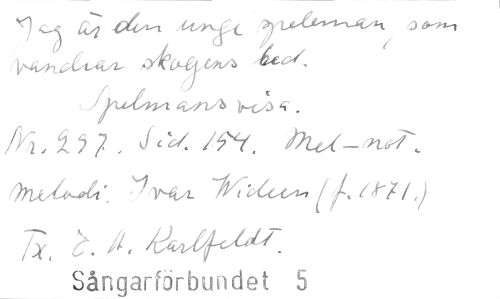 Jag är den unge speleman, som
vandrar skogens led.
Spelmansvisa.
Nr. 297. Sid. 154. Mel-not.
melodi. Ivar Widéen (f. 1871.)
Tx. E. A. Karlfeldt.
Sångarförbundet 5